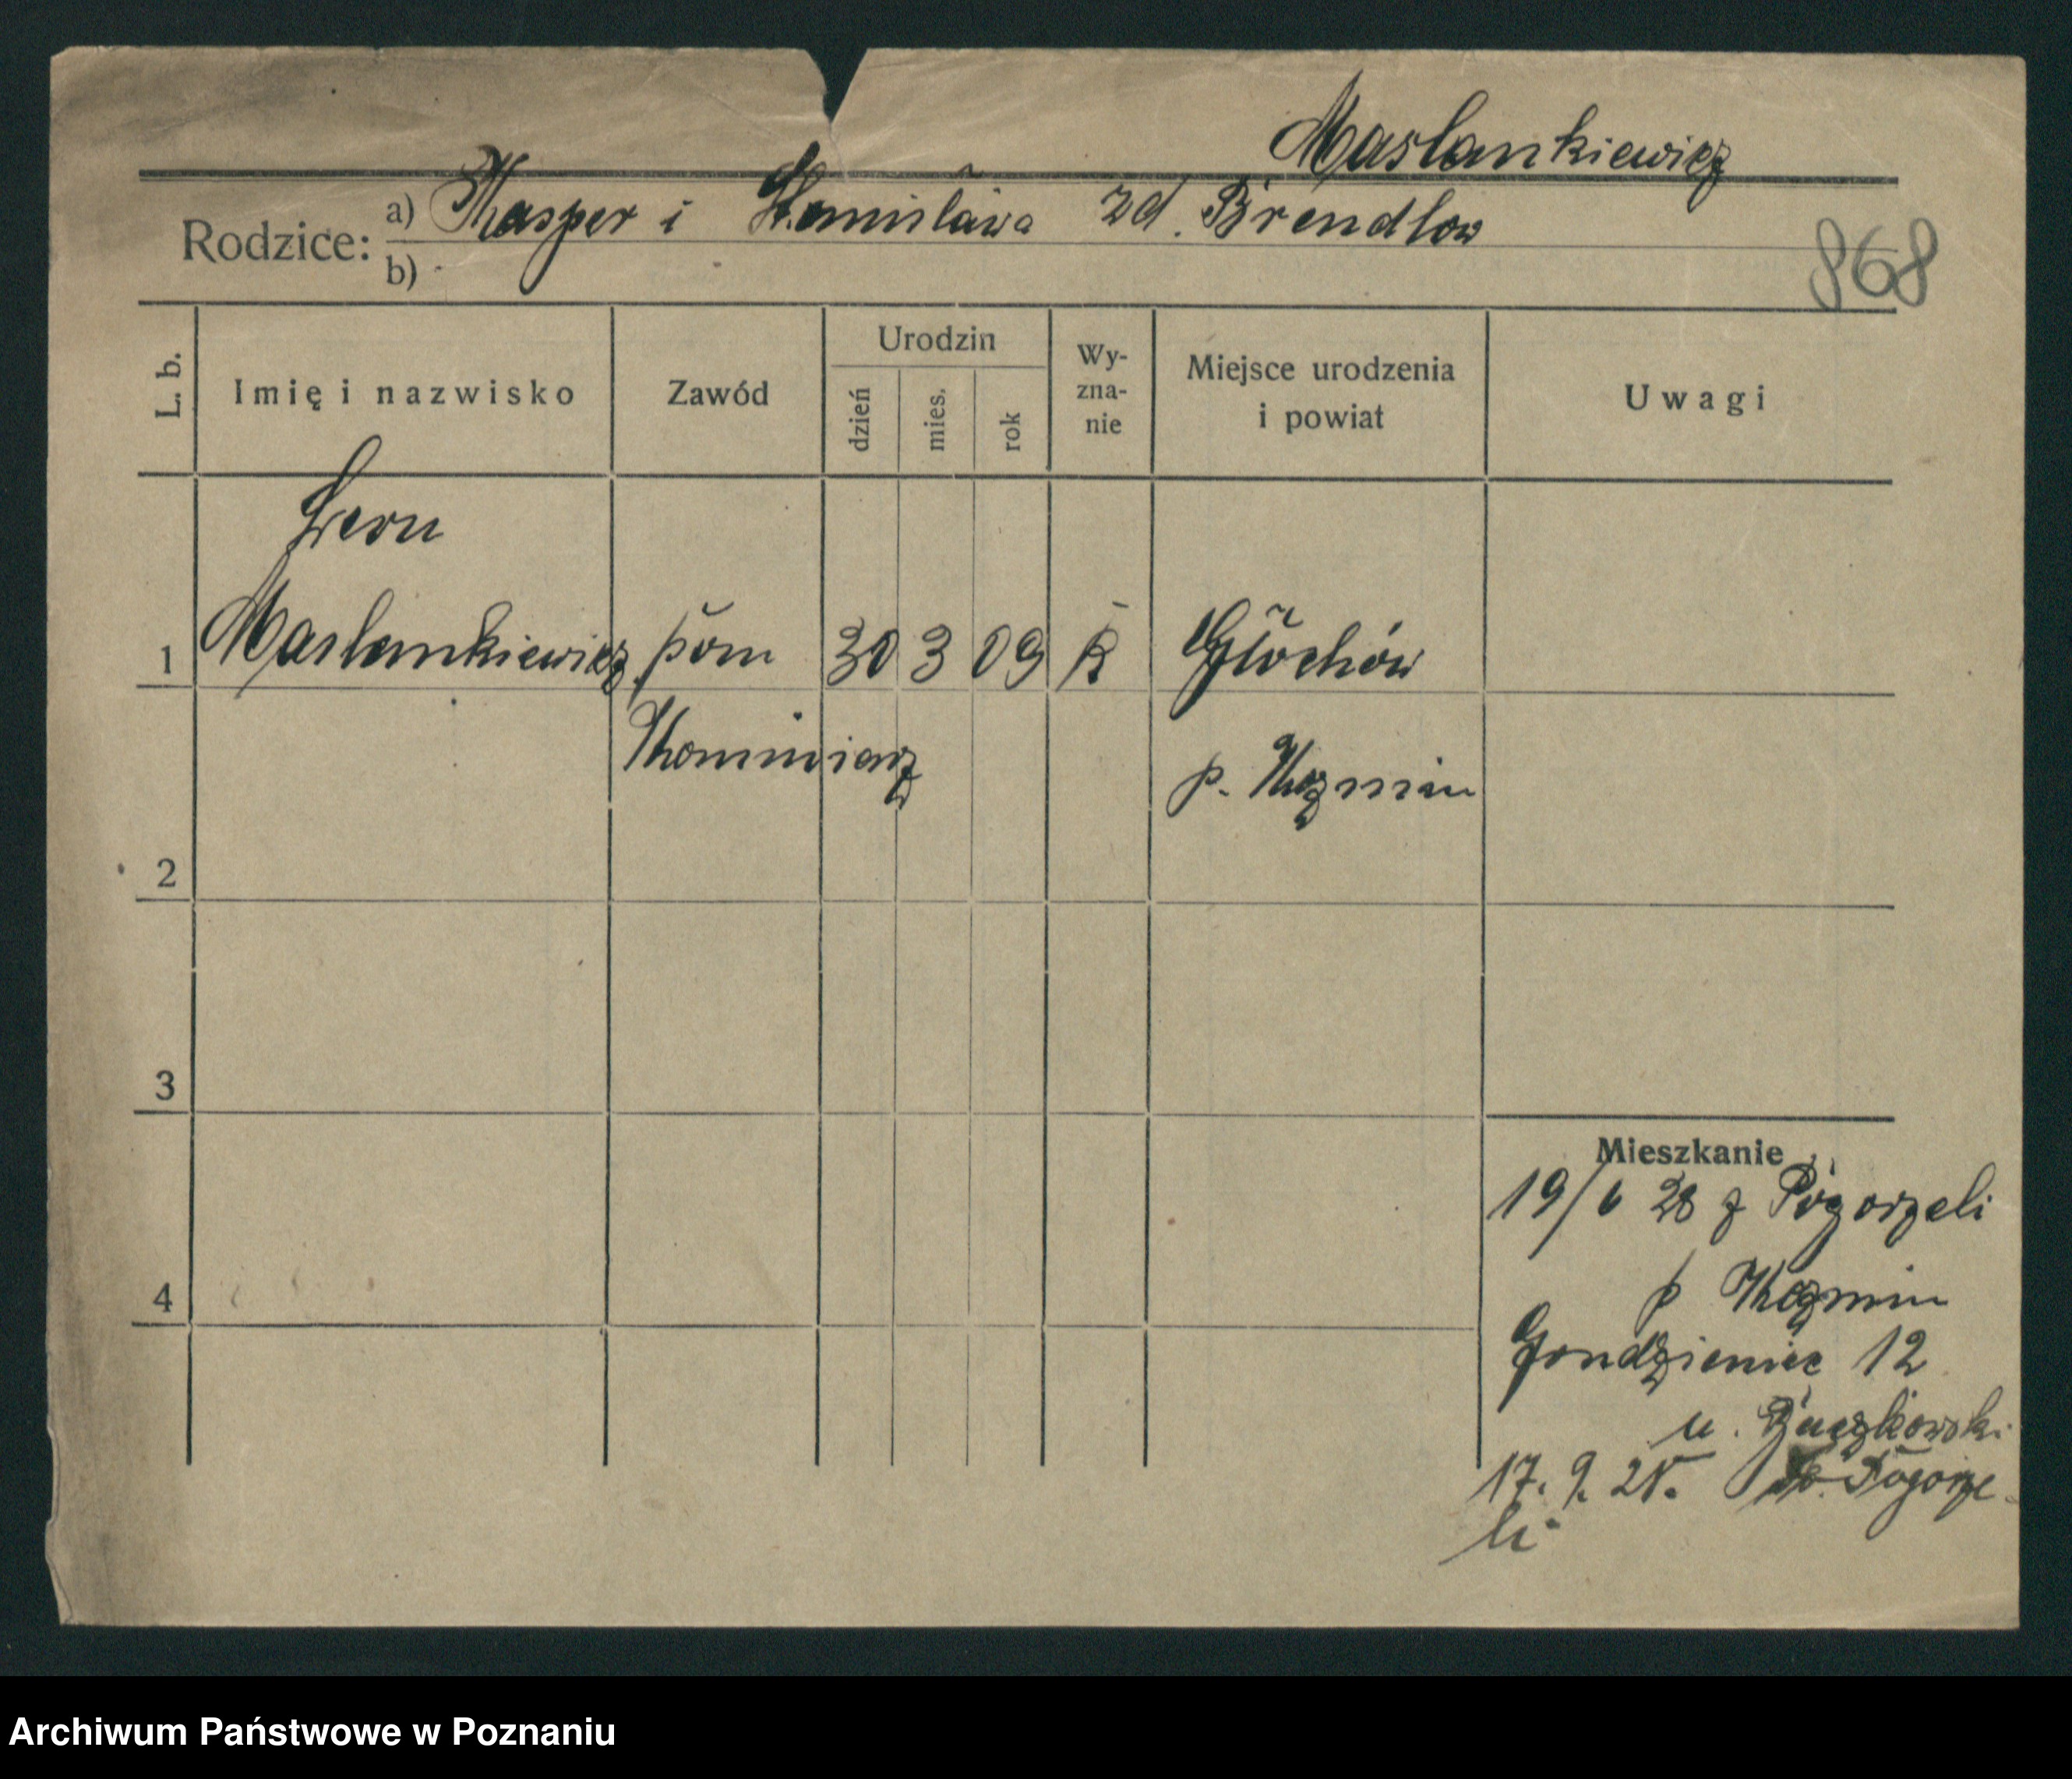 Maslankiewicz
Rodzice: a) Kasper i Stanisława zd. Brendlow
b)
868
L. b. Imię i nazwisko Zawód Urodzin dzień mies. rok Wy-zna-nie Miejsce urodzenia i powiat Uwagi
Leon
1 Maslankiewicz pom 30 3 09 K Głuchów
Kominiarz p. Kozmin
2
3
Mieszkanie
19/6 28 z Pogorzeli
p Kozmin
4
12
u.
17. 9. 28. do Pogorze-
li
Archiwum Państwowe w Poznaniu